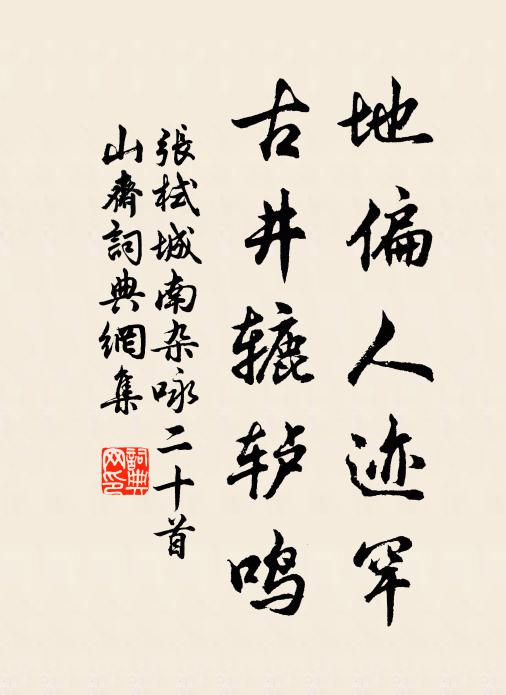 地偏人迹罕
古井辘轳鸣
張栻城南杂咏二十首
山齋詞典網集
詞典网印